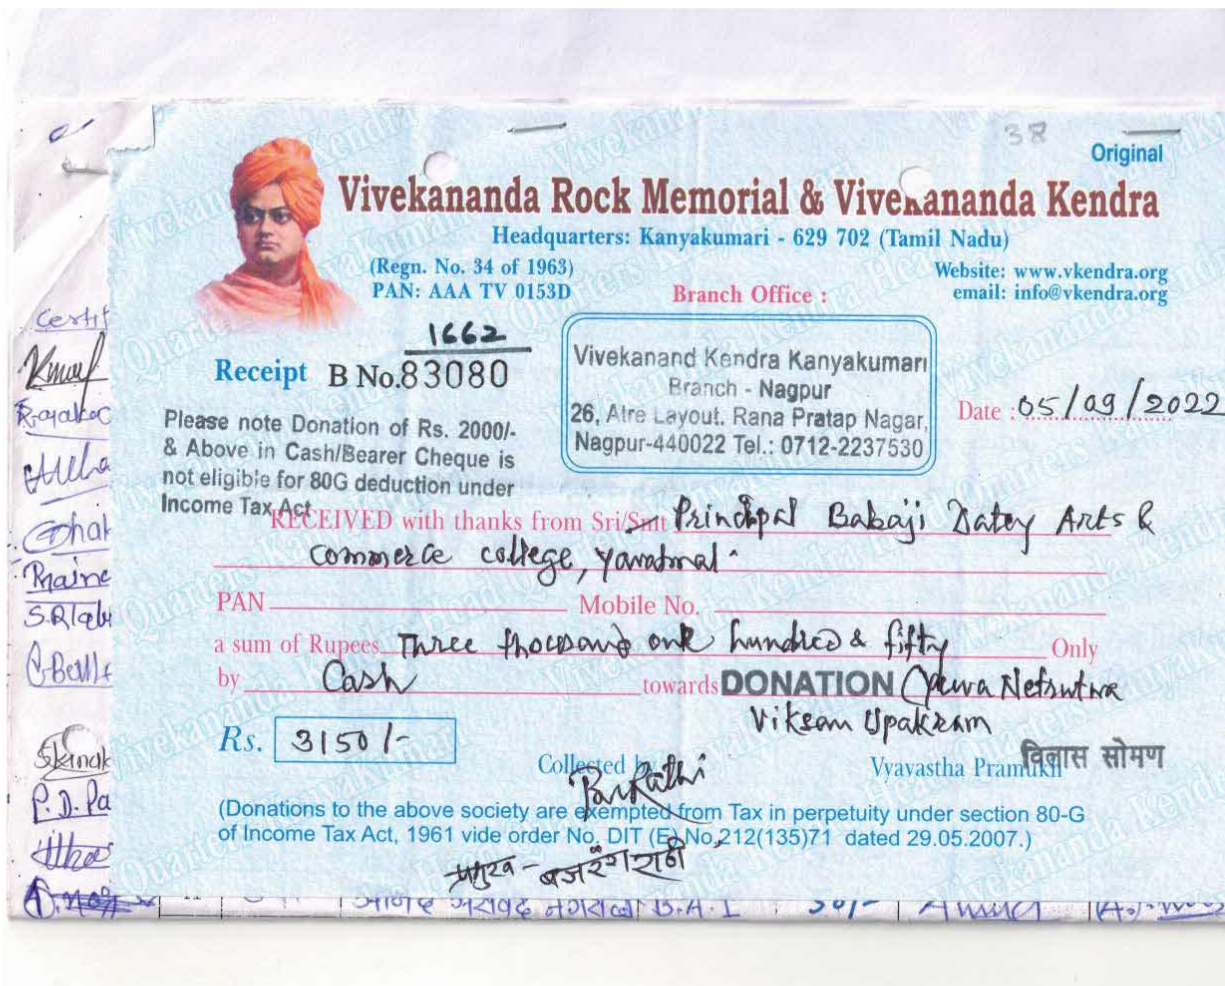 38
Original
Vivekananda Rock Memorial & Vivekananda Kendra
Headquarters: Kanyakumari - 629 702 (Tamil Nadu)
(Regn. No. 34 of 1963)
PAN: AAA TV 0153D
Website: www.vkendra.org
email: info@vkendra.org
Branch Office :
1662
Receipt B No.83080
Vivekanand Kendra Kanyakumari
Branch - Nagpur
26, Atre Layout. Rana Pratap Nagar,
Nagpur-440022 Tel.: 0712-2237530
Date : 05/09/2022
Please note Donation of Rs. 2000/-
& Above in Cash/Bearer Cheque is
not eligible for 80G deduction under
Income Tax Act
RECEIVED with thanks from Sri/Smt Principal Babaji Datey Arts &
commerce college, Yavatmal
PAN Mobile No.
a sum of Rupees Three thousand one hundred & fifty Only
by Cash towards DONATION Netrutva
Upakram
Rs. 3150/-
Collected by
Vyavastha Pramukh
विलास सोमण
(Donations to the above society are exempted from Tax in perpetuity under section 80-G
of Income Tax Act, 1961 vide order No. DIT (E) No,212(135)71 dated 29.05.2007.)
प्रमुख - बजरंग राठी
B.A.I 50/-